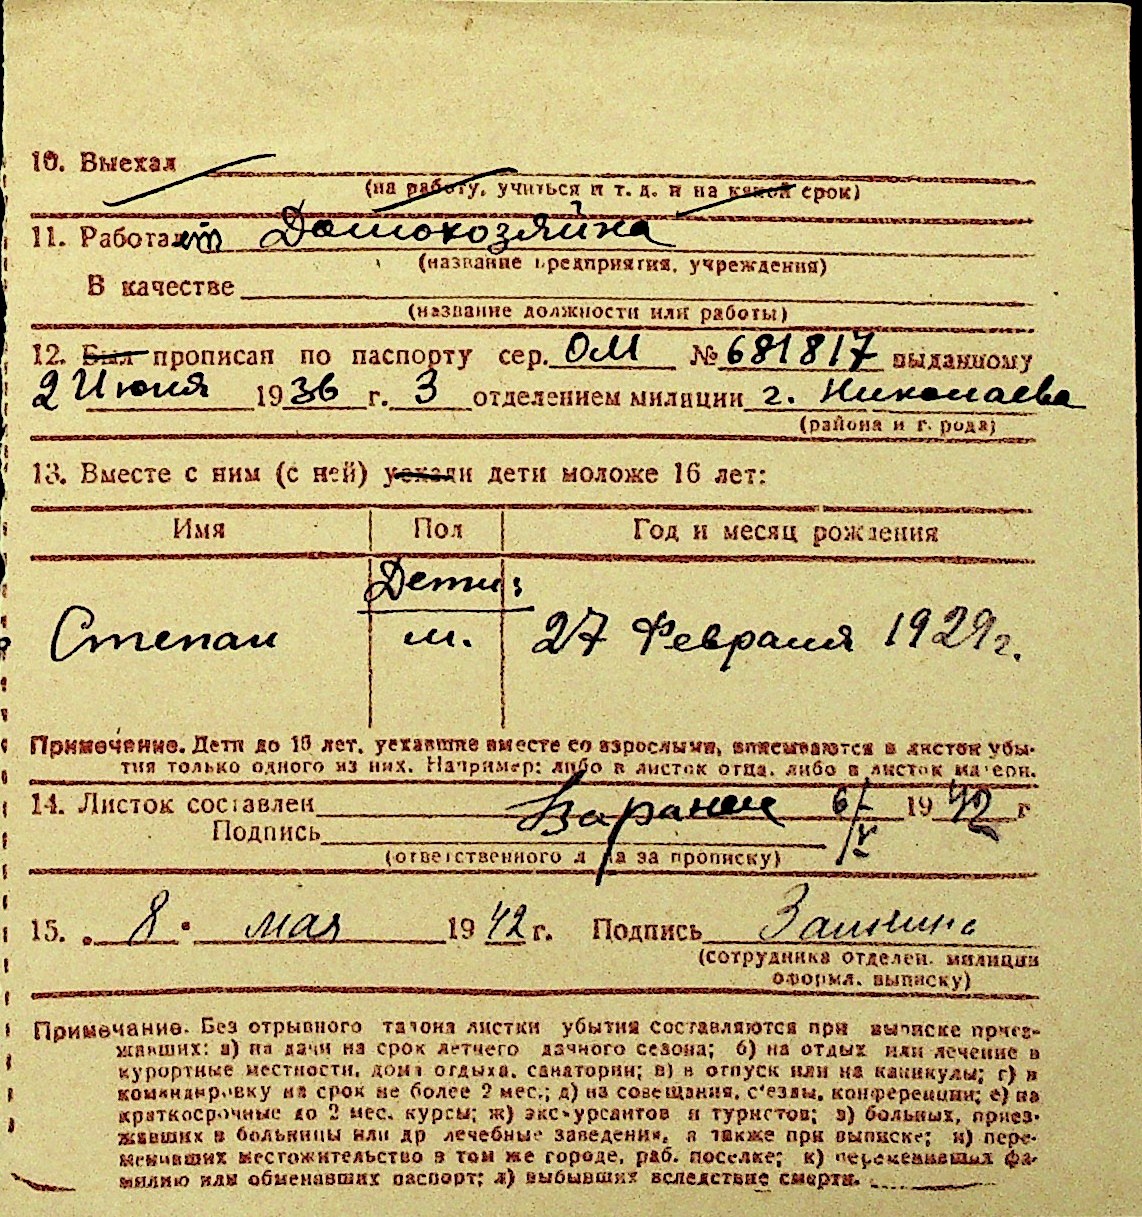 10. Выехал
(на работу, учиться и т. д. и на какой срок)
11. Работает Домохозяйка
(название предприятия, учреждения)
В качестве
(название должности или работы)
12. Был прописан по паспорту сер. ОМ № 681817 выданному
2 Июня 1936 г. 3 отделением милиции г. Николаева
(района и города)
13. Вместе с ним (с ней) уехали дети моложе 16 лет:
Имя Пол Год и месяц рождения
Дети:
Степан м. 27 Февраля 1929 г.
Примечание. Дети до 16 лет, уехавшие вместе со взрослыми, вписываются в листок убы-
тия только одного из них. Например: либо в листок отца, либо в листок матери.
14. Листок составлен 6/V 1942 г
Подпись
(ответственного лица за прописку)
15. „8“ мая 1942 г. Подпись
(сотрудника отделен. милиции
оформл. выписку)
Примечание. Без отрывного талона листки убытия составляются при выписке приез-
жавших: а) на дачи на срок летнего дачного сезона; б) на отдых или лечение в
курортные местности, дома отдыха, санатории; в) в отпуск или на каникулы; г) в
командировку на срок не более 2 мес.; д) на совещания, с'езды, конференции; е) на
краткосрочные до 2 мес. курсы; ж) экскурсантов и туристов; з) больных, приез-
жавших в больницы или др лечебные заведения, а также при выписке; и) пере-
менивших местожительство в том же городе, раб. поселке; к) переменивших фа-
милию или обменавших паспорт; л) выбывших вследствие смерти.